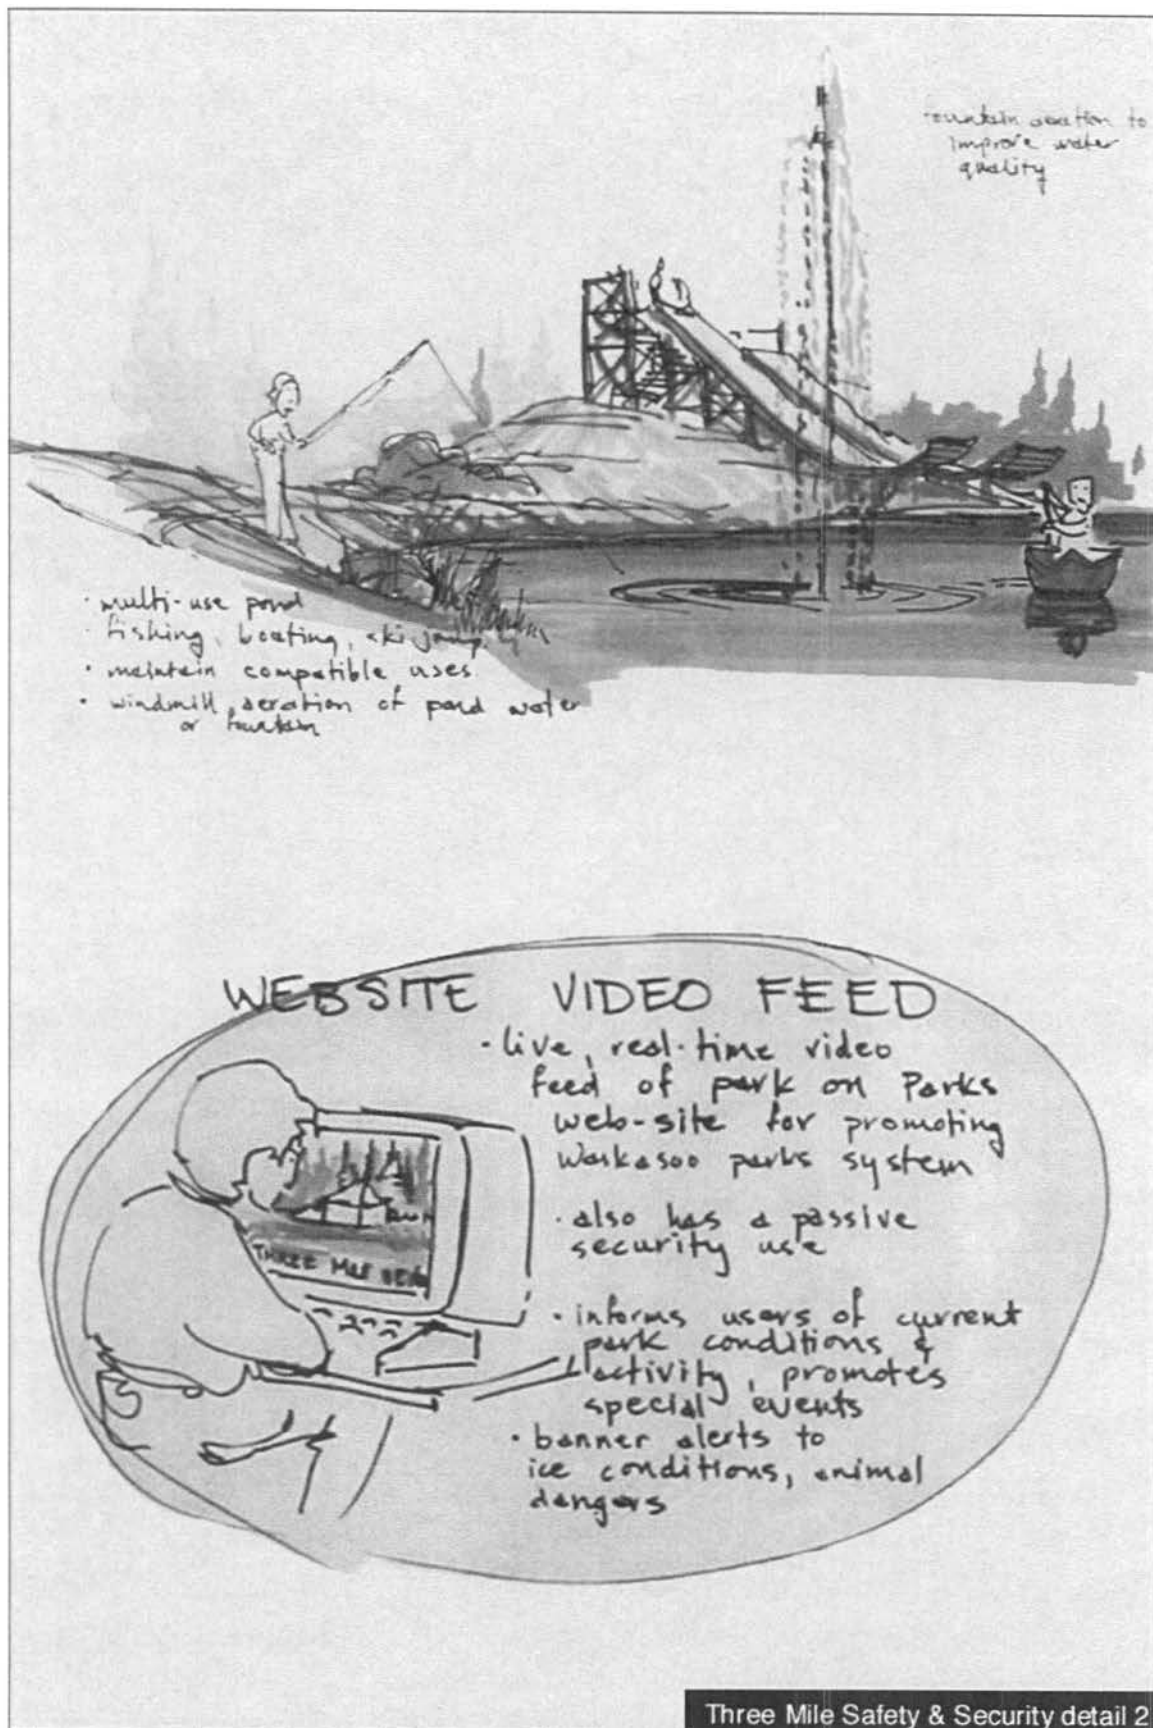 fountain aeration to
improve water
quality
· multi-use pond
· fishing, boating, ski-jump
· maintain compatible uses
· windmill, aeration of pond water
or fountain
WEBSITE VIDEO FEED
· live, real-time video
feed of park on Parks
web-site for promoting
Waskasoo parks system
· also has a passive
security use
· informs users of current
park conditions &
activity, promotes
special events
· banner alerts to
ice conditions, animal
dangers
THREE MILE
Three Mile Safety & Security detail 2